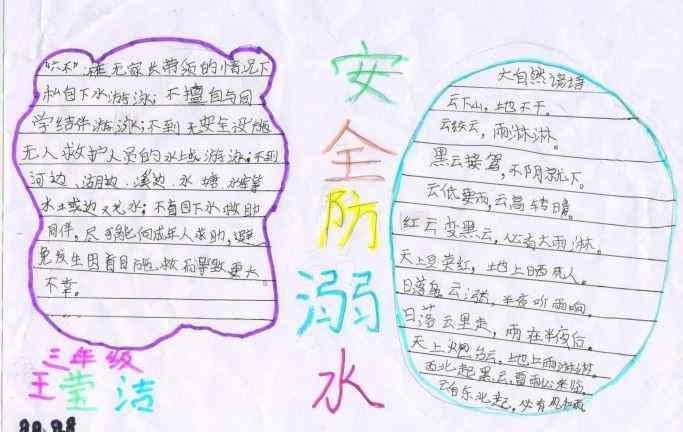 "六不":在无家长带领的情况下
私自下水游泳;不擅自与同
学结伴游泳;不到无安全设施
无人救护人员的水域游泳;不到
河边、湖边、溪边、水塘、水库等
水边
同伴,尽可能向成年人求助,避
免发生因盲目施救而导致更大
不幸。
三年级
王莹洁
安
全
防
溺
水
大自然谚语
云下山,地不干。
云绞云,雨淋淋。
黑云接驾,不阴就下。
云低要雨,云高转晴。
红云变黑云,必有大雨淋。
天上
日落
日落云里走,雨在半夜后。
天上
西北起黑云,雷雨必来临。
云自东北起,必有风和雨